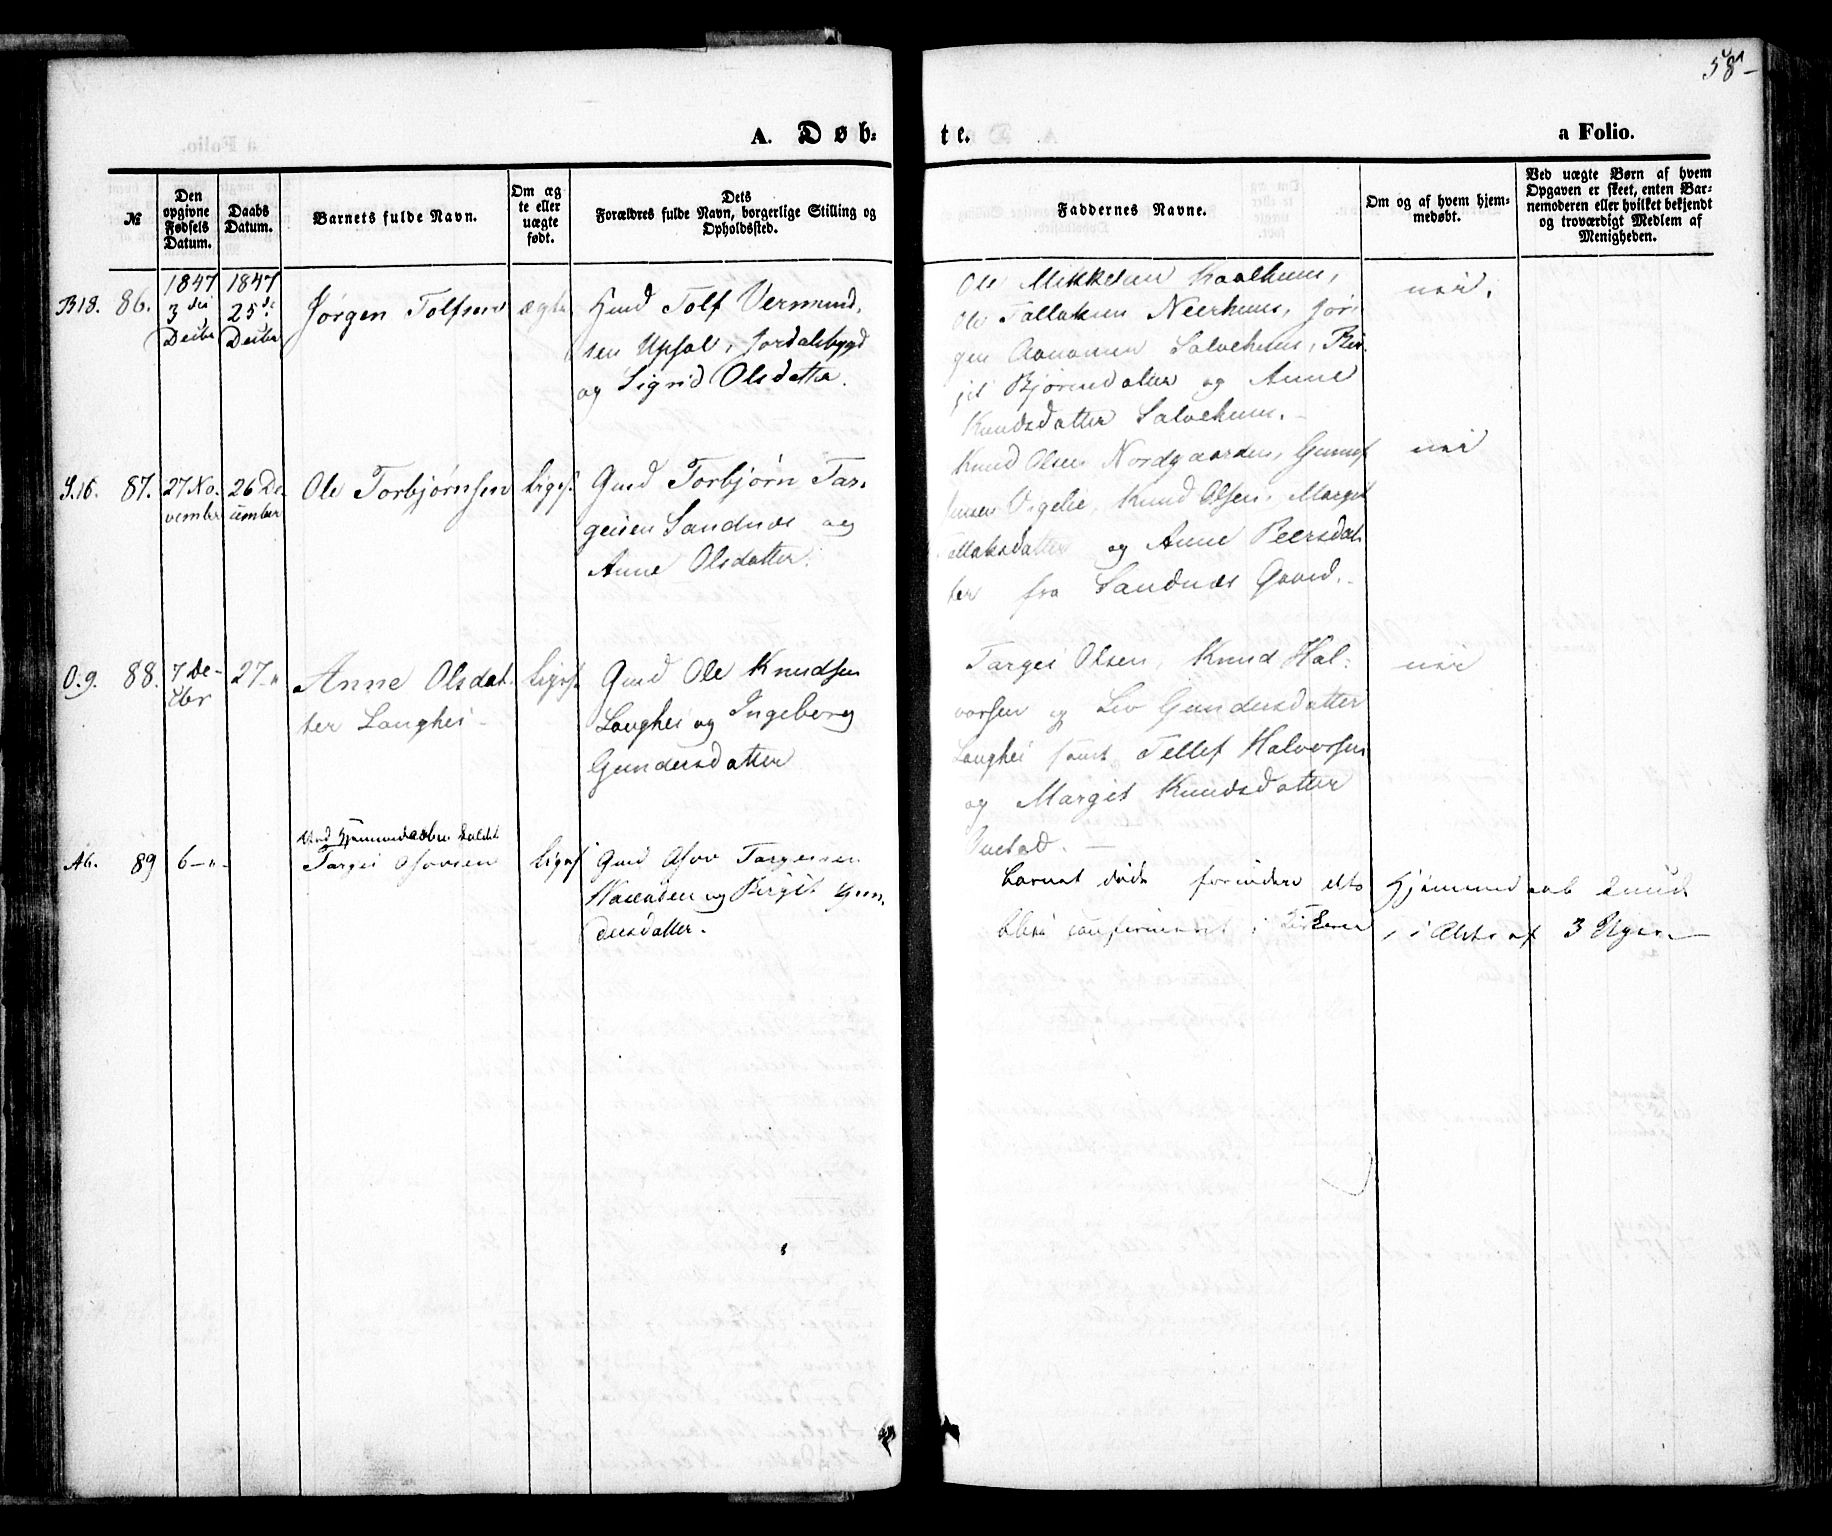 58-
A. Døb-
te.
a Folio.
№
Den opgivne Fødsels Datum.
Daabs Datum.
Barnets fulde Navn.
Om ægte eller uægte født.
Dets
Forældres fulde Navn, borgerlige Stilling og
Opholdssted.
Faddernes Navne.
Om og af hvem hjemmedøbt.
Ved uægte Børn af hvem
Opgaven er skeet, enten Bar-
nemoderen eller hvilket bekjendt
og troværdigt Medlem af
Menigheden.
B18. 86.
1847
3die
Decbr
1847
25de
Decbr
Jørgen Tolfsen
ægte
Gmd Tolf Vermund.
sen Upsal, Hordalsbygd
og Sigrid Olsdatter.
Ole Mikkelsen Kaalhuus,
Ole Tallaksen Neerhuus, Jør-
gen Aanonsen Salvehuus, Bir-
git Bjørnsdatter og Anne
Knudsdatter Salvehuus.-
nei.
S.16. 87.
27 No-
vember
26 De-
cember
Ole Torbjørnsen
liges.
Gmd Torbjørn Tar-
geisen Sandnæs og
Anne Olsdatter.
Knud Olsen Nordgaarden, Gunuf
Vigelie, Knud Olsen, Margit
Tallaksdatter og Anne Peersdat-
ter fra Sandnæs Gaard.-
nei
O.9. 88.
7 De-
cbr
27-"
Anne Olsdat-
ter Langhei -
ligesf.
Gmd Ole Knudsen
Langhei og Ingeborg
Gundersdatter
Targei Olsen, Knud Hal-
vorsen og Liv Gundersdatter
Langhei samt Tellef Halvorsen
og Margit Knudsdatter
nei
A6. 89
6-"-
ved Hjemmedaaben kaldet
Targei Osovsen
ligesf
Gmd Osov Targeisen
og Birgit Gun-
dersdatter.
barnet døde forinden dets Hjemmedaab kunde
blive confirmeret i Kirken, i Alder af 3 Uger.-